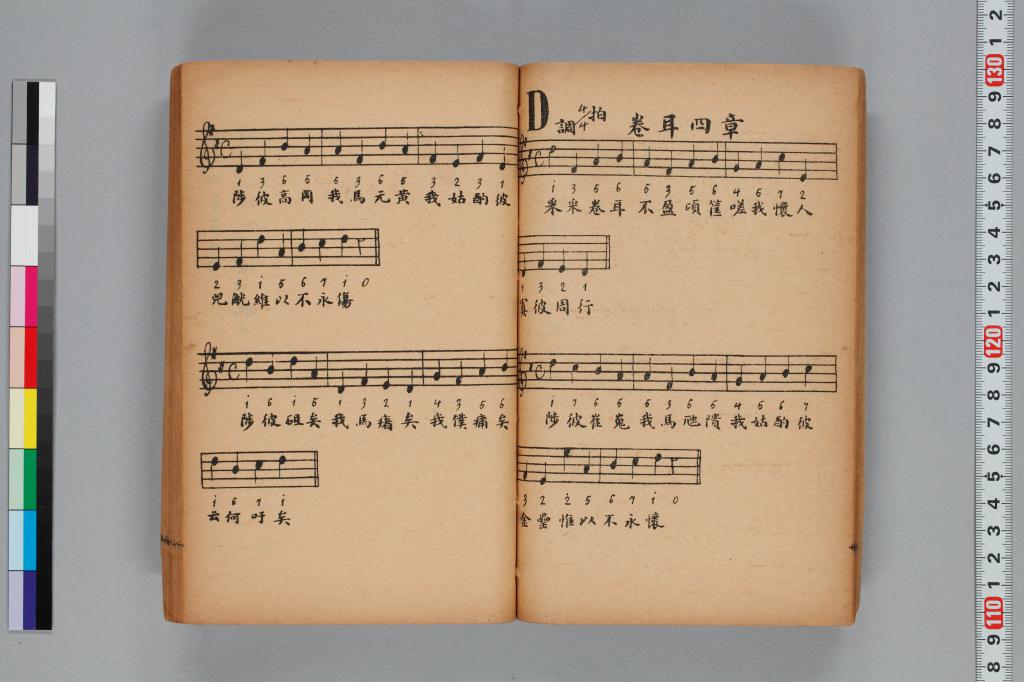 D 調 4/4 拍 卷耳四章
i 3 5 6 5 3 5 6 4 5 7 2
采采卷耳 不盈頃筐 嗟我懷人
1 3 2 1
寘彼周行
i 7 6 5 5 3 6 5 4 5 6 7
陟彼崔嵬 我馬虺隤 我姑酌彼
3 2 2 5 6 7 i 0
金罍惟以不永懷
1 3 6 5 5 3 6 5 3 2 3 1
陟彼高岡 我馬元黃 我姑酌彼
2 3 i 5 6 7 i 0
兕觥維以不永傷
i 6 i 5 1 3 2 1 4 3 5 6
陟彼砠矣 我馬瘏矣 我僕痡矣
i 6 7 i
云何吁矣
2 1 130 9 8 7 6 5 4 3 2 1 120 9 8 7 6 5 4 3 2 1 110 9 8